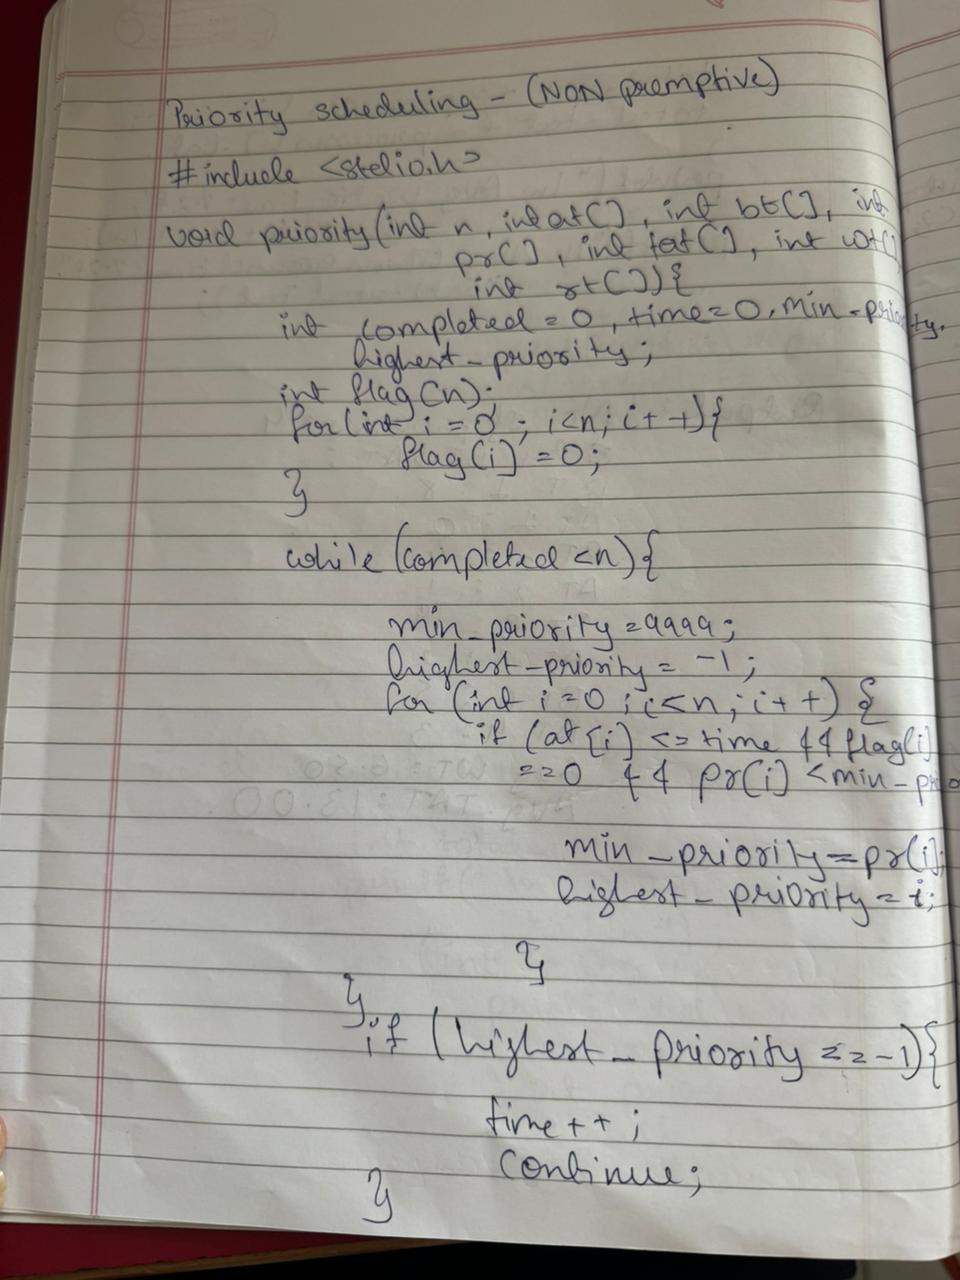 Priority scheduling - (NON premptive)
#include <stdio.h>
void priority(int n, int at[], int bt[], int
pr[], int tat[], int wt[]
int rt[]){
int completed = 0, time=0, min-priority,
highest-priority;
int flag[n];
for(int i=0; i<n; i++){
flag[i] = 0;
}
while (completed <n){
min_priority = 9999;
highest-priority = -1;
for (int i=0; i<n; i++) {
if (at[i] <= time && flag[i]
==0 && pr[i] <min-prio
min-priority=pr[i];
highest-priority = i;
}
}
if (highest-priority == -1){
time++;
continue;
}